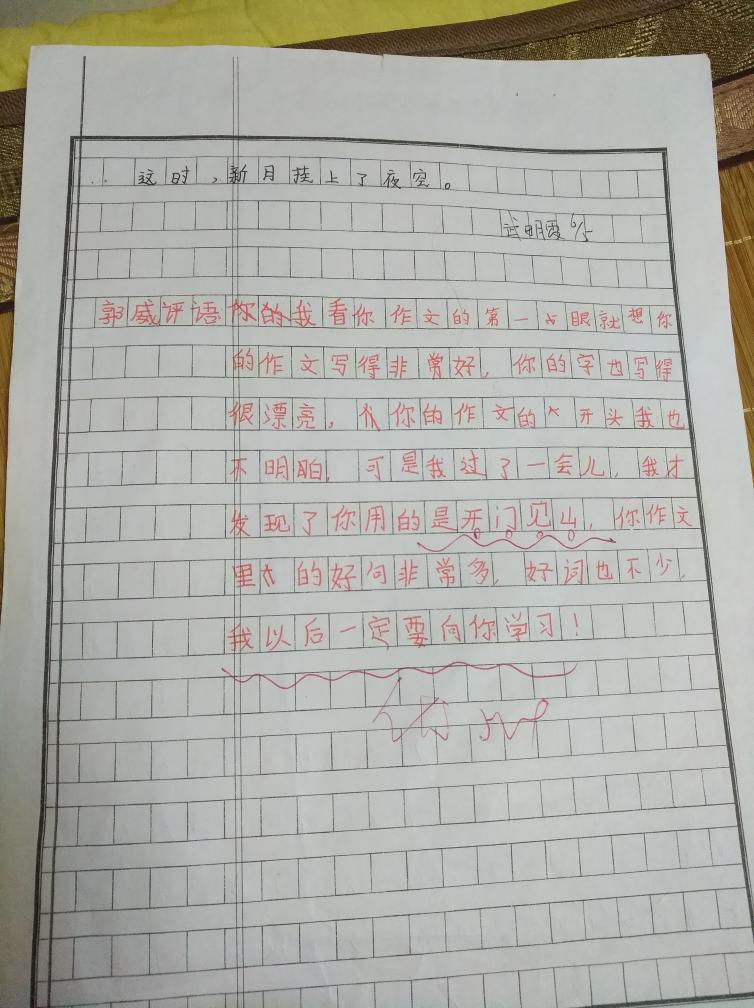 这时，新月挂上了夜空。
明霞 6/5
郭威评语 你的我看你作文的第一眼就想你
的作文写得非常好，你的字也写得
很漂亮，你的作文的开头我也
不明盽，可是我过了一会儿，我才
发现了你用的是开门见山，你作文
里的好句非常多，好词也不少，
我以后一定要向你学习！